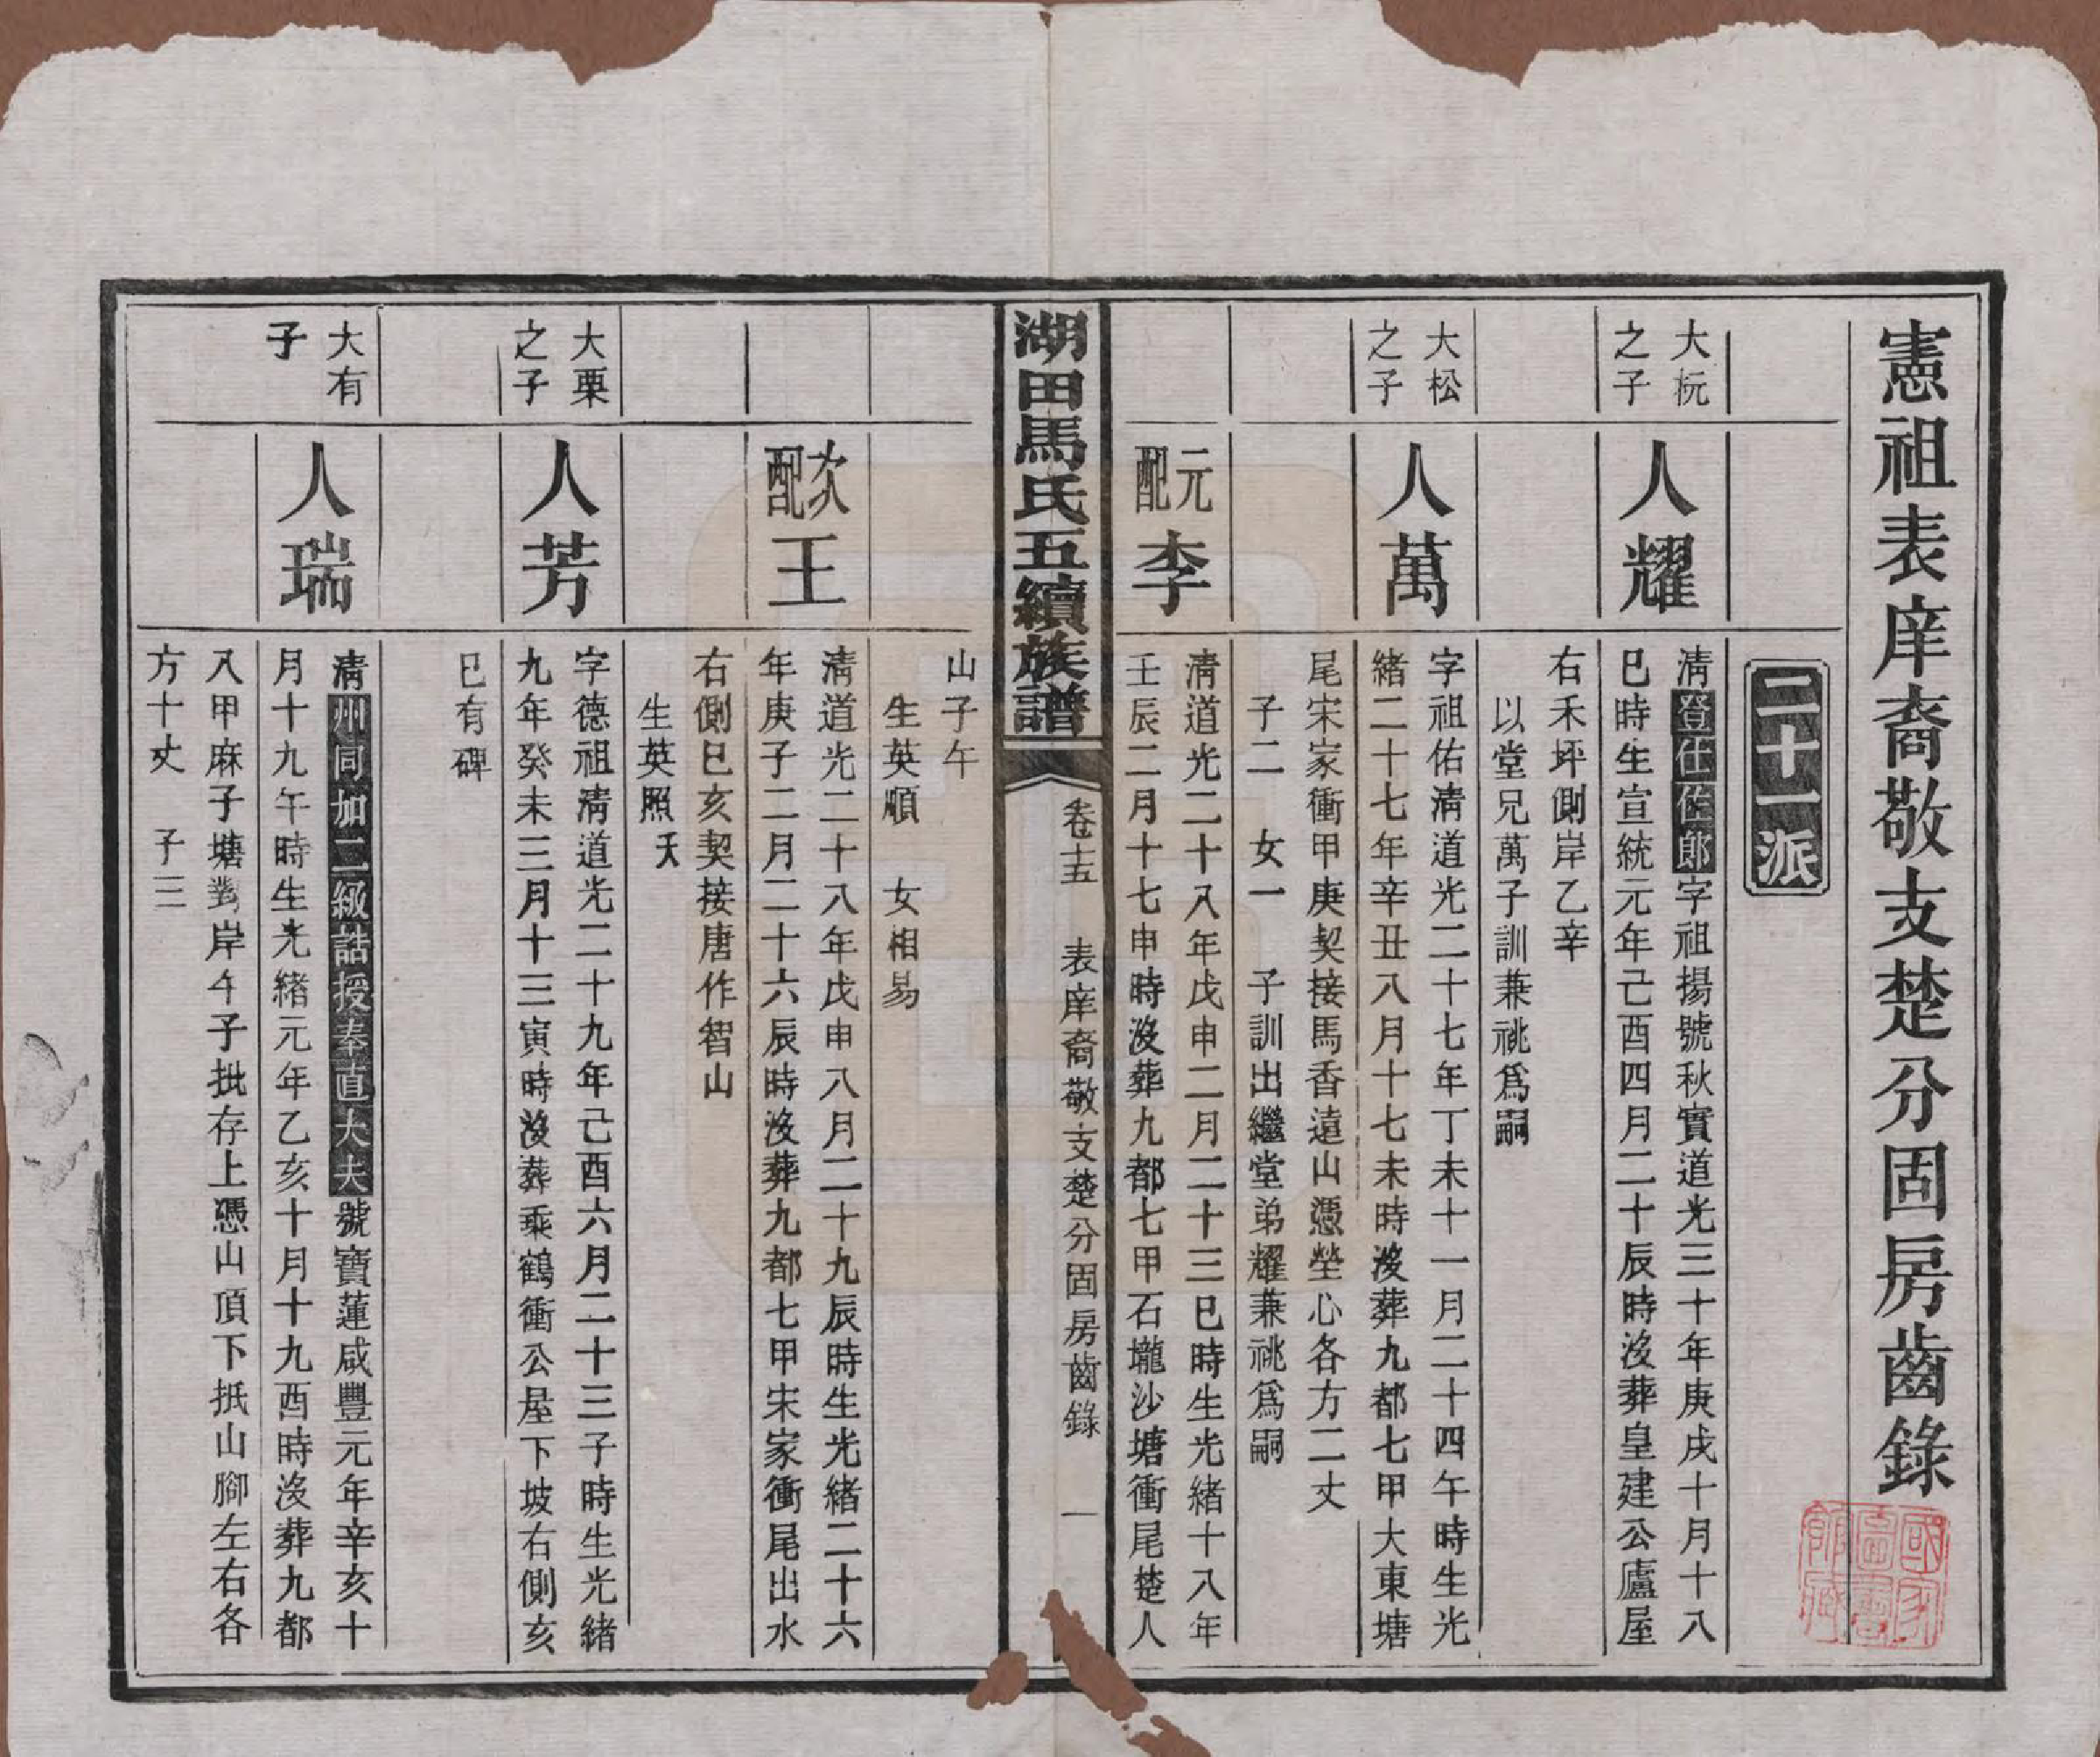 憲祖表庠裔敬支楚分固房齒錄
二十一派
大杬之子
人耀
清登仕佐郎字祖揚號秋實道光三十年庚戌十月十八
巳時生宣統元年己酉四月二十辰時沒葬皇建公廬屋
右禾坪側岸乙辛
以堂兄萬子訓兼祧爲嗣
大松之子
人萬
字祖佑清道光二十七年丁未十一月二十四午時生光
緒二十七年辛丑八月十七未時沒葬九都七甲大東塘
尾宋家衝甲庚契接馬香遠山憑塋心各方二丈
子二 女一 子訓出繼堂弟耀兼祧爲嗣
元配
李
清道光二十八年戊申二月二十三巳時生光緒十八年
壬辰二月十七申時沒葬九都七甲石壠沙塘衝尾楚人
湖田馬氏五續族譜
卷十五 表庠裔敬支楚分固房齒錄 一
山子午
生英順 女相易
次配
王
清道光二十八年戊申八月二十九辰時生光緒二十六
年庚子二月二十六辰時沒葬九都七甲宋家衝尾出水
右側巳亥契接唐作智山
生英照 夭
大栗之子
人芳
字德祖清道光二十九年己酉六月二十三子時生光緒
九年癸未三月十三寅時沒葬乘鶴衝公屋下坡右側亥
巳有碑
大有子
人瑞
清州同加二級誥授奉直大夫號寶蓮咸豐元年辛亥十
月十九午時生光緒元年乙亥十月十九酉時沒葬九都
八甲麻子塘對岸午子批存上憑山頂下抵山腳左右各
方十丈 子三
國家圖書館藏